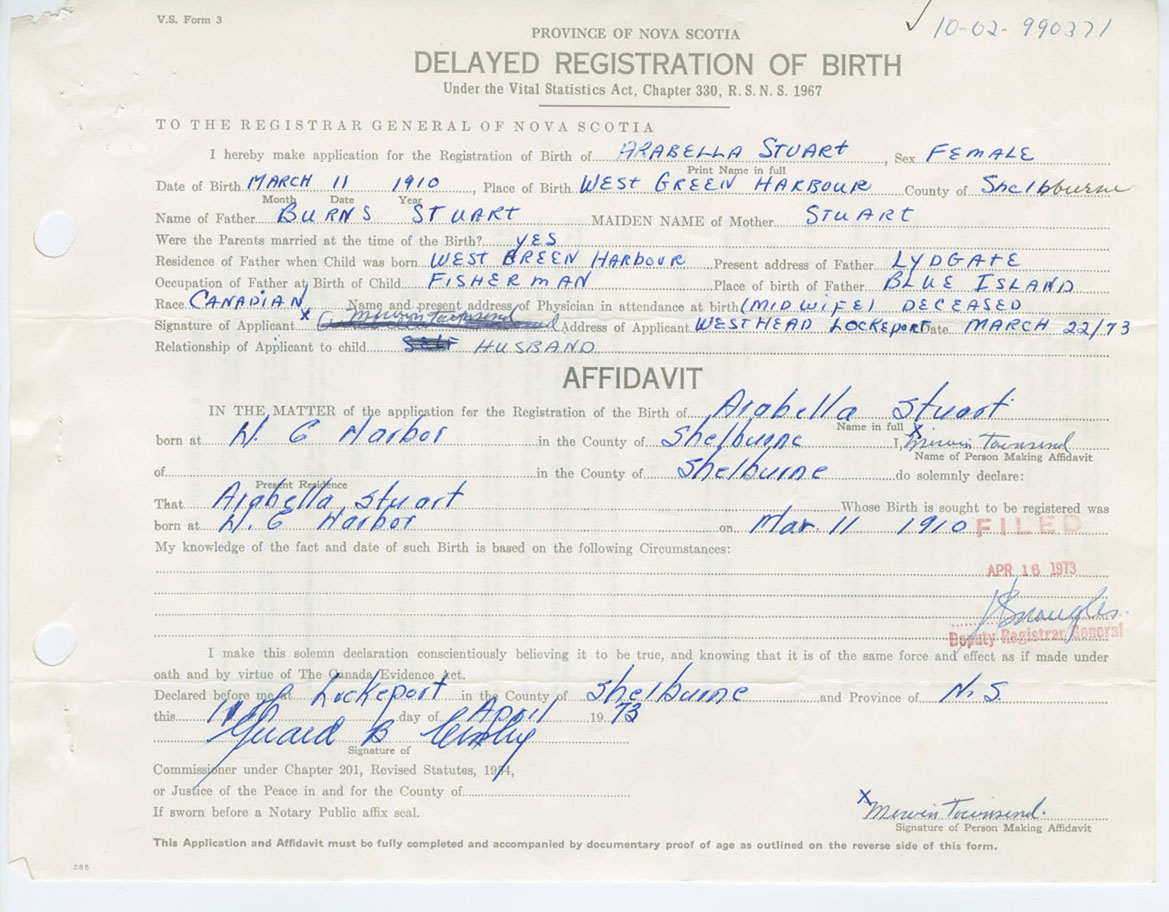 V.S. Form 3
10-02-990371
PROVINCE OF NOVA SCOTIA
DELAYED REGISTRATION OF BIRTH
Under the Vital Statistics Act, Chapter 330, R. S. N. S. 1967
TO THE REGISTRAR GENERAL OF NOVA SCOTIA
I hereby make application for the Registration of Birth of ARABELLA STUART, Sex FEMALE
Print Name in full
Date of Birth MARCH 11 1910, Place of Birth WEST GREEN HARBOUR County of Shelbburne
Month Date Year
Name of Father BURNS STUART MAIDEN NAME of Mother STUART
Were the Parents married at the time of the Birth? YES
Residence of Father when Child was born WEST GREEN HARBOUR Present address of Father LYDGATE
Occupation of Father at Birth of Child FISHERMAN Place of birth of Father BLUE ISLAND
Race CANADIAN Name and present address of Physician in attendance at birth (MIDWIFE) DECEASED
Signature of Applicant X Merwin Townsend Address of Applicant WESTHEAD LOCKEPORT Date MARCH 22/73
Relationship of Applicant to child SELF HUSBAND
AFFIDAVIT
IN THE MATTER of the application for the Registration of the Birth of Arabella Stuart
Name in full
born at W. G Harbor in the County of Shelburne I, X Merwin Townsend
Name of Person Making Affidavit
of in the County of Shelburne do solemnly declare:
Present Residence
That Arabella Stuart Whose Birth is sought to be registered was
born at W. G Harbor on Mar. 11 1910
FILED
My knowledge of the fact and date of such Birth is based on the following Circumstances:
APR 16 1973
Deputy Registrar General
I make this solemn declaration conscientiously believing it to be true, and knowing that it is of the same force and effect as if made under
oath and by virtue of The Canada Evidence Act.
Declared before me at Lockeport in the County of Shelburne and Province of N.S.
this day of April 1973
Signature of
Commissioner under Chapter 201, Revised Statutes, 1954,
or Justice of the Peace in and for the County of
If sworn before a Notary Public affix seal.
X Merwin Townsend.
Signature of Person Making Affidavit
This Application and Affidavit must be fully completed and accompanied by documentary proof of age as outlined on the reverse side of this form.
286